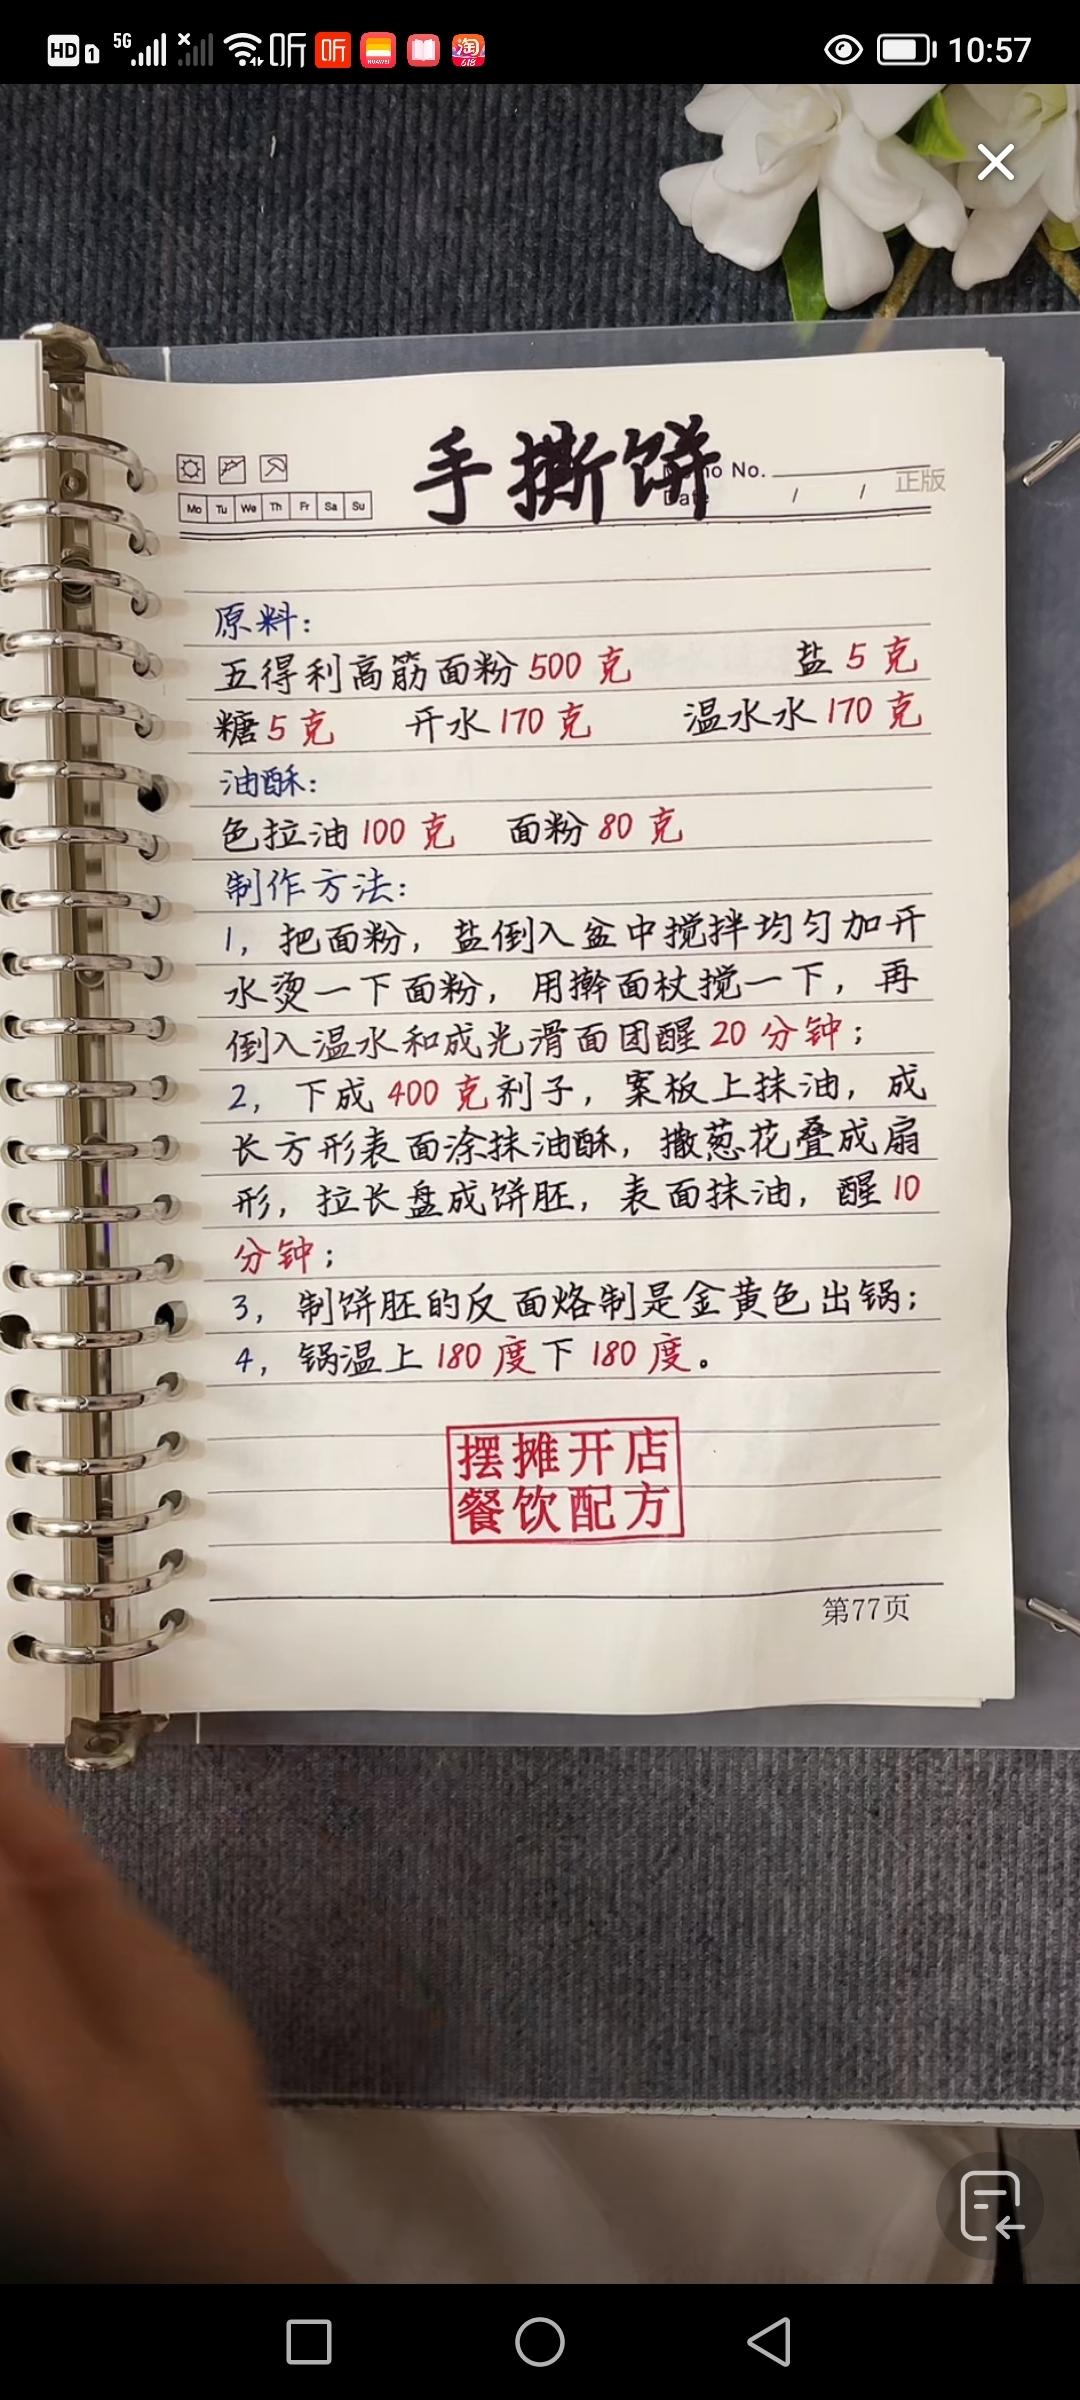 HD 1 5G 听 听 HUAWEI 淘 618 10:57
手撕饼
No.
Date / / 正版
Mo Tu We Th Fr Sa Su
原料:
五得利高筋面粉500克 盐5克
糖5克 开水170克 温水水170克
油酥:
色拉油100克 面粉80克
制作方法:
1, 把面粉, 盐倒入盆中搅拌均匀加开
水烫一下面粉, 用擀面杖搅一下, 再
倒入温水和成光滑面团醒20分钟;
2, 下成400克剂子, 案板上抹油, 成
长方形表面涂抹油酥, 撒葱花叠成扇
形, 拉长盘成饼胚, 表面抹油, 醒10
分钟;
3, 制饼胚的反面烙制是金黄色出锅;
4, 锅温上180度下180度。
摆摊开店
餐饮配方
第77页